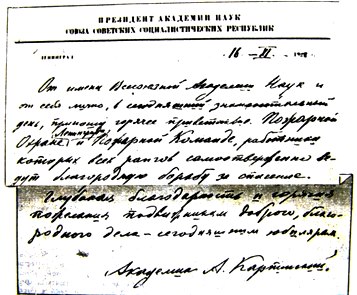 ПРЕЗИДЕНТ АКАДЕМИИ НАУК
СОЮЗА СОВЕТСКИХ СОЦИАЛИСТИЧЕСКИХ РЕСПУБЛИК
ЛЕНИНГРАД
16 - II - 1928 г.
От имени Всесоюзной Академии Наук и
от себя лично, в сегодняшний знаменательный
день, приношу горячее приветствие Пожарной
Ленинграда
Охране и Пожарной Команде, работники
которых всех рангов самоотверженно ве-
дут благородную борьбу за спасение.
Глубокая благодарность и горячие
пожелания подвижникам доброго, благо-
родного дела - сегодняшним юбилярам.
Академик А. Карпинский